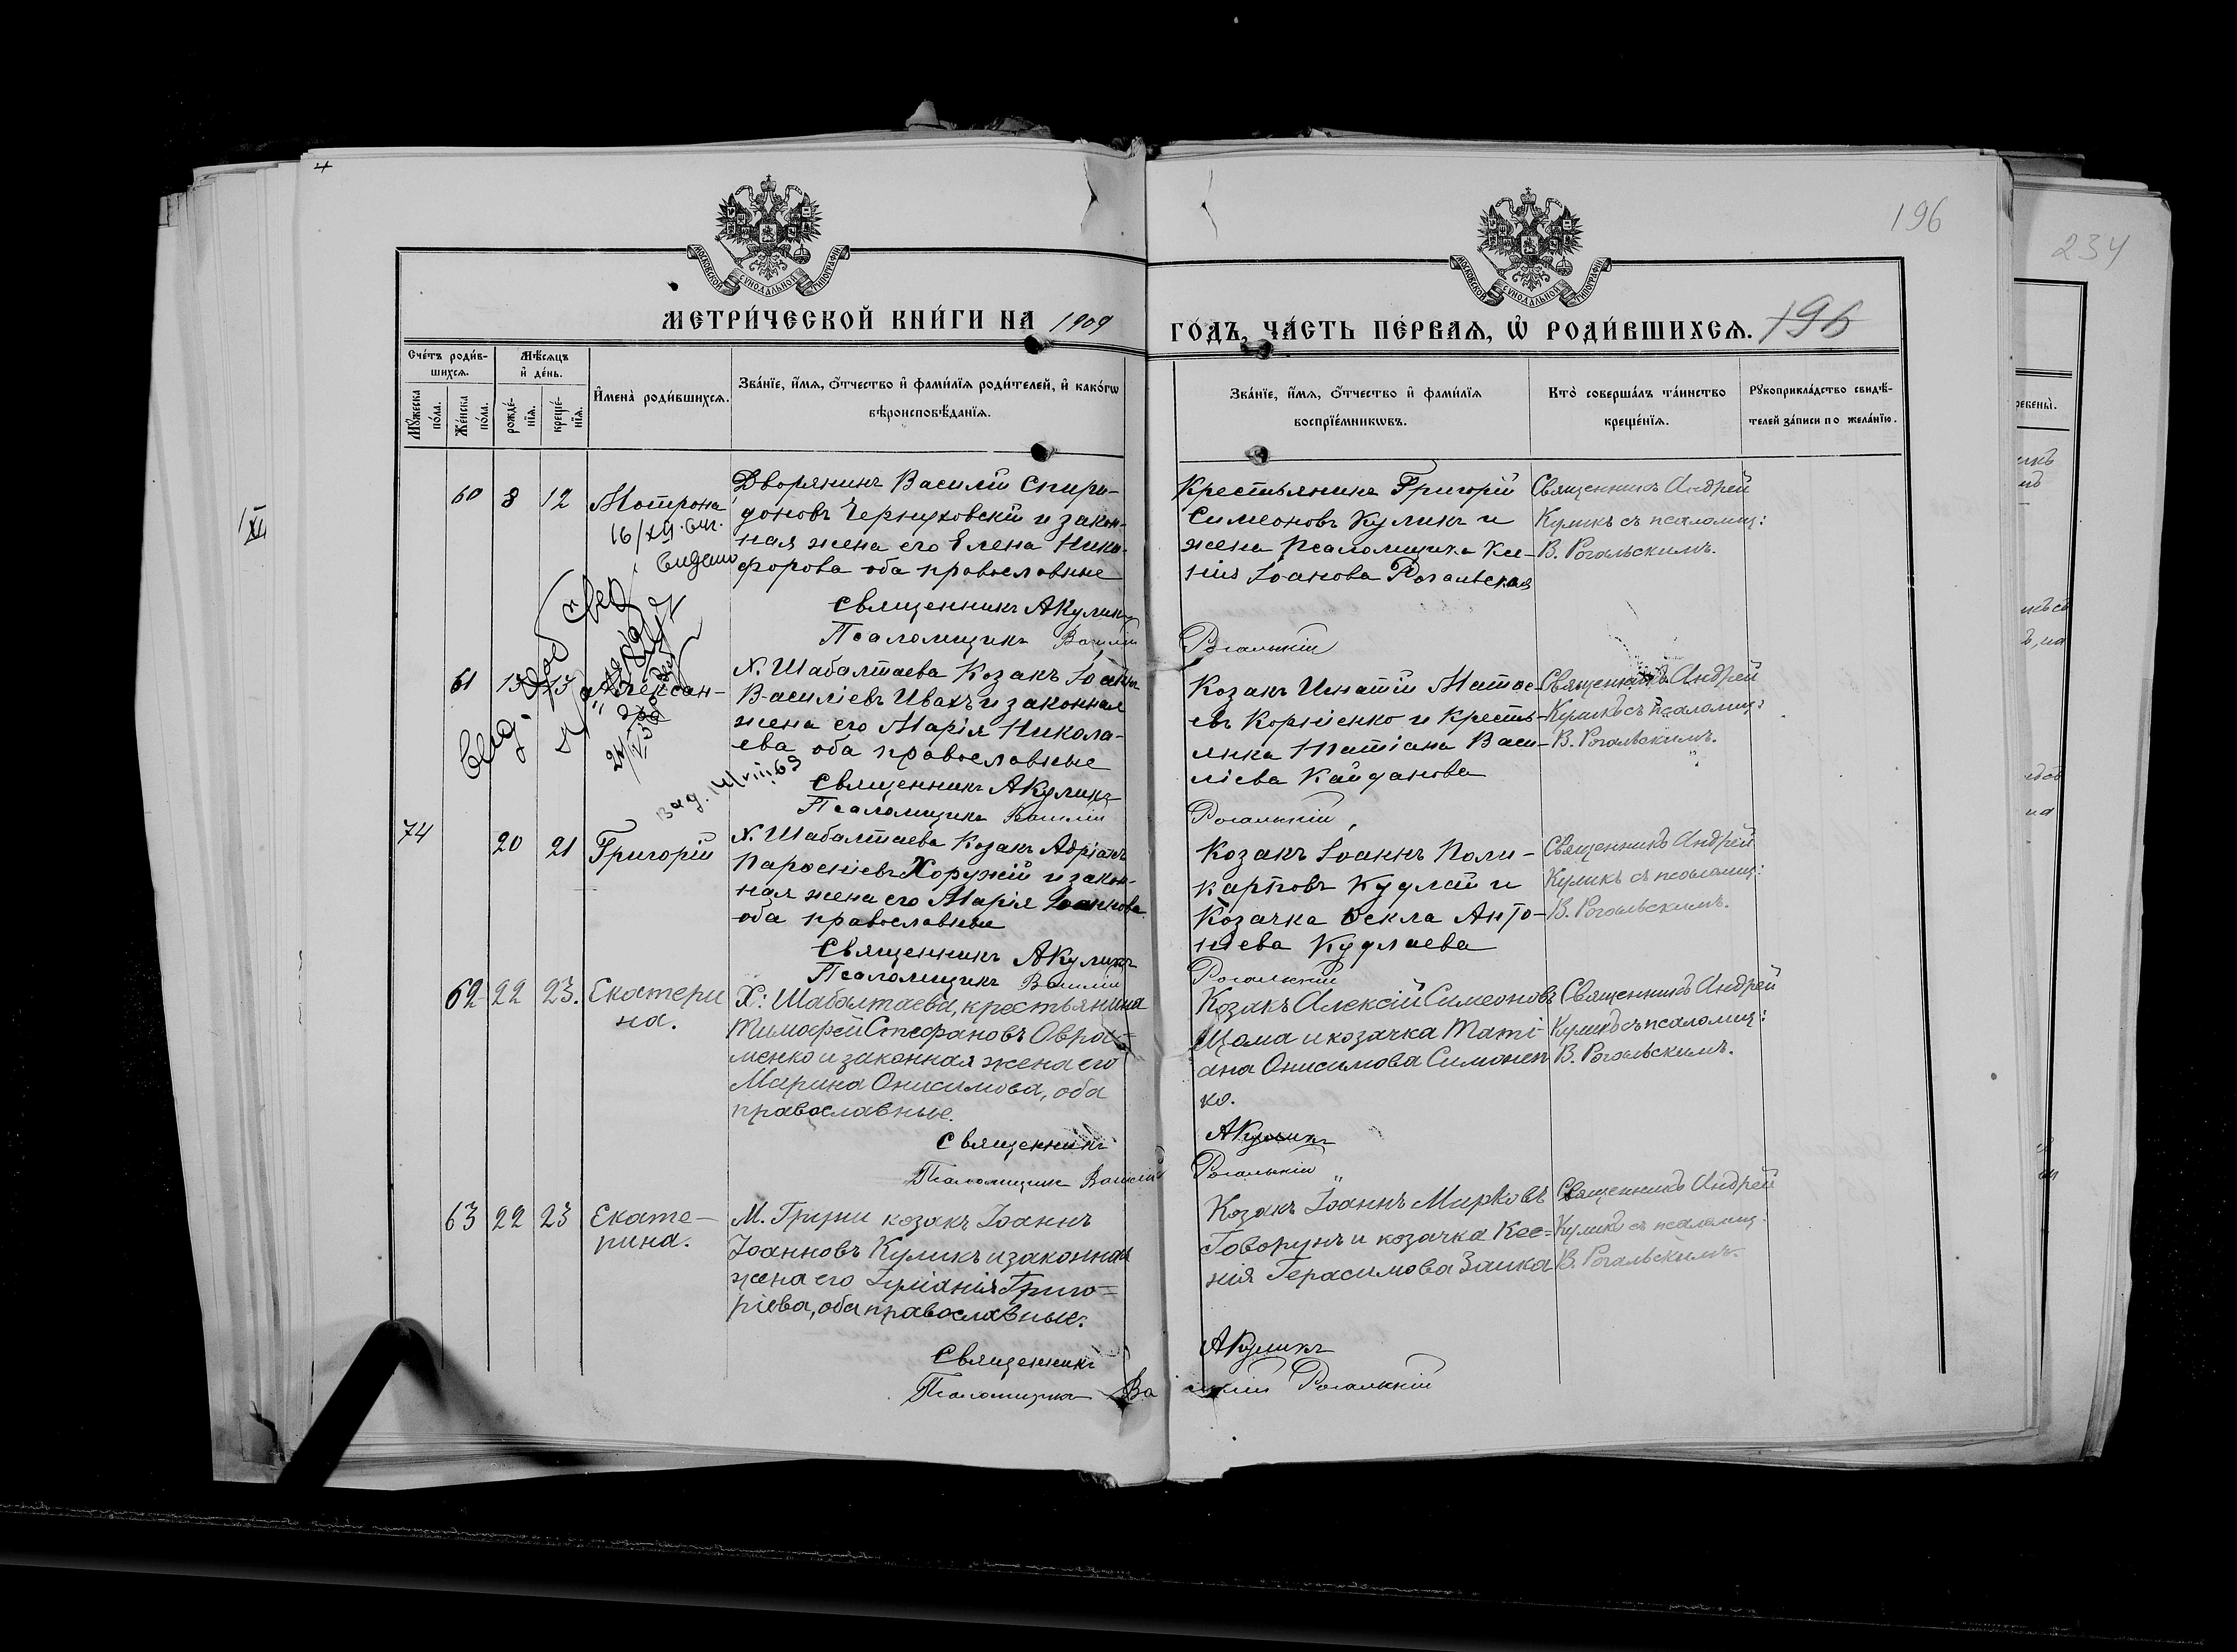 196
234
МОСКОВСКОЙ СѴНОДАЛЬНОЙ ТИПОГРАФІИ
МОСКОВСКОЙ СѴНОДАЛЬНОЙ ТИПОГРАФІИ
МЕТРИ́ЧЕСКОЙ КНИ́ГИ НА 1909
ГО́ДЪ, ЧА́СТЬ ПЕ́РВАЯ, Ѡ҆ РОДИ́ВШИХСЯ. 196
Сче́тъ роди́в-
шихся.
Мѣ́сяцъ
и҆ де́нь.
Мꙋ́жеска
по́ла.
Же́нска
по́ла.
рожде́-
нїя.
креще́-
нїя.
И҆мена̀ роди́вшихся.
Зва́нїе, и҆́мя, ѻ҆́тчество и҆ фами́лїя роди́телей, и҆ како́гѡ
вѣроисповѣ́данїя.
Зва́нїе, и҆́мя, ѻ҆́тчество и҆ фами́лїя
воспрїе́мникѡвъ.
Кто̀ соверша́лъ та́инство
креще́нїя.
Рꙋкоприкла́дство свидѣ́-
телей за́писи по жела́нїю.
60 8 12 Мотрона
16/XII
видано
Дворянинъ Василій Спири-
доновъ Чернуховскій и закон-
ная жена его Елена Ники-
форова оба православные
Священникъ АКуликъ
Псаломщикъ Василій
Крестьянинъ Григорій
Симеоновъ Куликъ и
жена псаломщика Ксе-
нія Іоанова Рогальская
Рогальскій
Священникъ Андрей
Куликъ съ псаломщ:
В. Рогальскимъ.
61 13 13 Алексан-
Х. Шабалтаева Козакъ Іоанъ
Василіевъ Ивахъ и законная
жена его Марія Никола-
ева оба православные
Священникъ АКуликъ
Псаломщикъ Василій
Козакъ Игнатій Матѳе-
евъ Корніенко и Кресть-
янка Татіана Васи-
ліева Кайданова
Рогальскій
Священникъ Андрей
Куликъ съ псаломщ:
В. Рогальскимъ.
74 20 21 Григорій
Х. Шабалтаева Козакъ Адріанъ
Парѳеніевъ Хоружій и закон-
ная жена его Марія Іоаннова
оба православные
Священникъ АКуликъ
Псаломщикъ Василій
Козакъ Іоаннъ Поли-
карповъ Кудлай и
Козачка Ѳекла Анто-
ніева Кудлаева
Рогальскій
Священникъ Андрей
Куликъ съ псаломщ:
В. Рогальскимъ.
62 22 23. Екатери
на.
Х: Шабалтаева, крестьянина
Тимофей Стефановъ Овра-
менко и законная жена его
Марина Онисимова, оба
православные.
Священникъ
Псаломщикъ Василій
Козакъ Алексій Симеоновъ
Щома и козачка Таті-
ана Онисимова Симонен
ко.
АКуликъ
Рогальскій
Священникъ Андрей
Куликъ съ псаломщ:
В. Рогальскимъ.
63 22 23 Екате-
рина.
М. Груни козакъ Іоаннъ
Іоанновъ Куликъ и законная
жена его Іуліанія Григо=
ріева, оба православные.
Священникъ
Псаломщикъ Василій Рогальскій
Козакъ Іоаннъ Марковъ
Говорунъ и козачка Ксе=
нія Герасимова Заика
АКуликъ
Священникъ Андрей
Куликъ съ псаломщ.
В. Рогальскимъ.